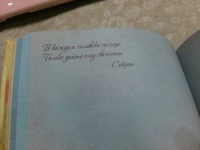 В каждом человеке солнце.
Только дайте ему светить.
Сократ